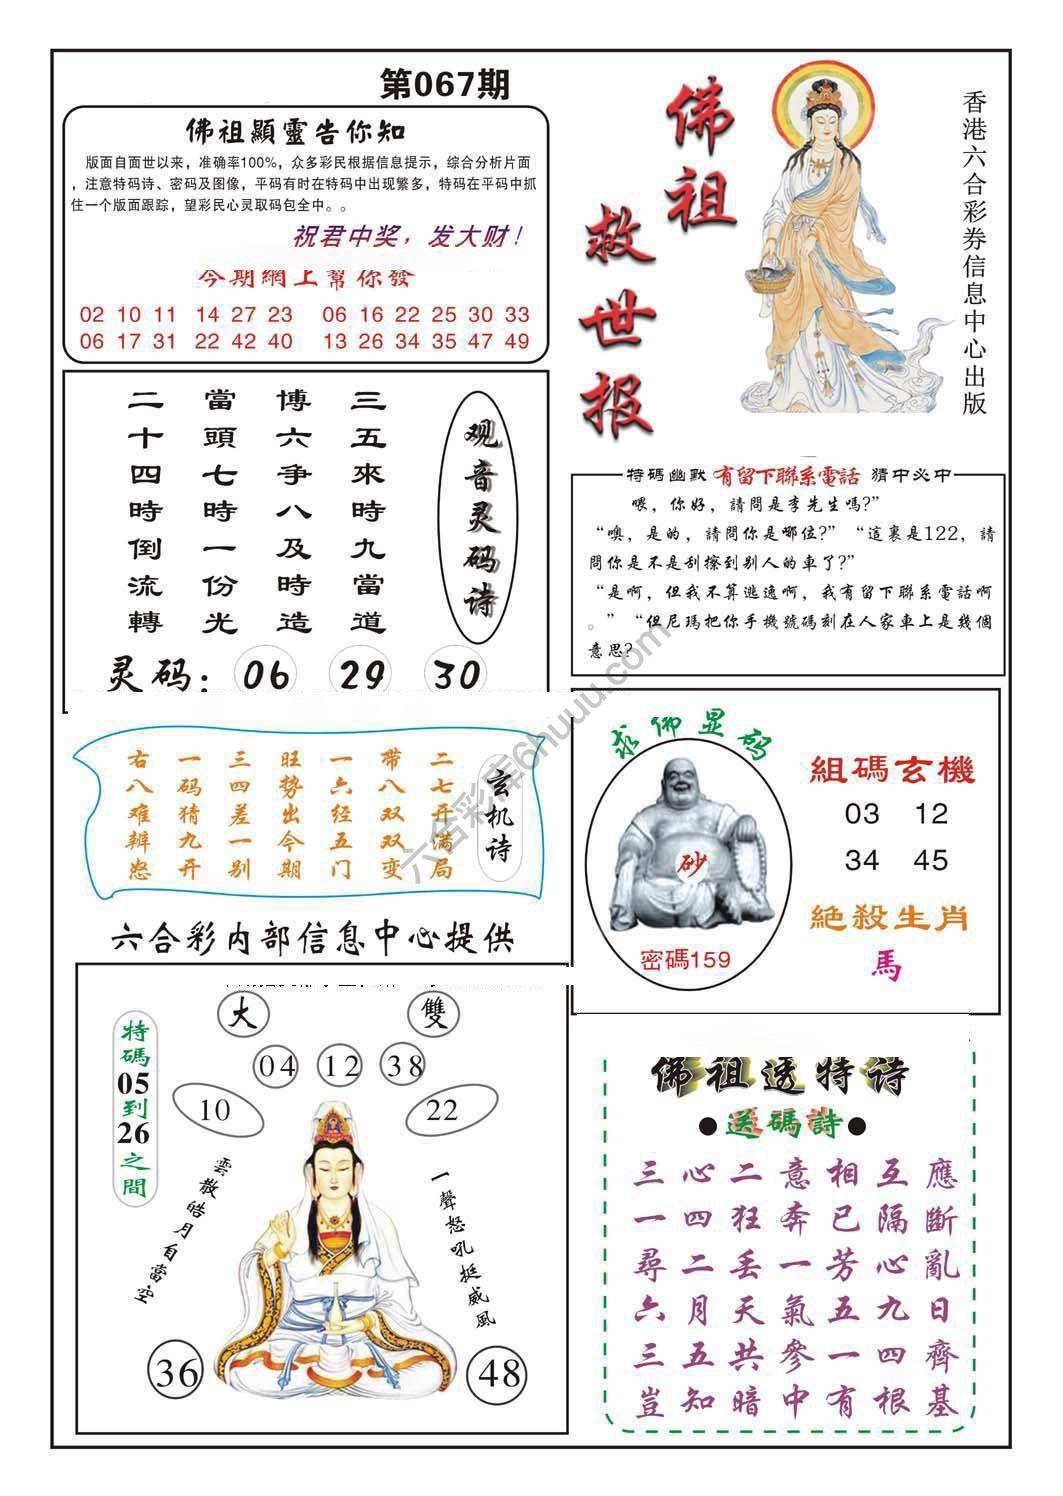 第067期
佛祖顯靈告你知
版面自面世以来，准确率100%，众多彩民根据信息提示，综合分析片面
，注意特码诗、密码及图像，平码有时在特码中出现繁多，特码在平码中抓
住一个版面跟踪，望彩民心灵取码包全中。。
祝君中奖，发大财！
今期網上幫你發
02 10 11 14 27 23 06 16 22 25 30 33
06 17 31 22 42 40 13 26 34 35 47 49
佛祖
救世报
香港六合彩券信息中心出版
观音灵码诗
三五來時九當道
博六爭八及時造
當頭七時一份光
二十四時倒流轉
灵码：06 29 30
特碼幽默 有留下聯系電話 猜中必中
喂，你好，請問是李先生嗎?”
“噢，是的，請問你是哪位?” “這裏是122，請
問你是不是刮擦到别人的車了?”
“是啊，但我不算逃逸啊，我有留下聯系電話啊
。” “但尼瑪把你手機號碼刻在人家車上是幾個
意思?
玄机诗
二七开满局
带八双双变
一六经五门
旺势出今期
三四差一别
一码猜九开
右八难辨怒
六合彩内部信息中心提供
求佛显码
砂
密碼159
組碼玄機
03 12
34 45
絕殺生肖
馬
大 雙
04 12 38
10 22
特碼05到26之間
雲散皓月自當空
一聲怒吼挺威風
36 48
佛祖透特诗
●送碼詩●
三心二意相互應
一四狂奔已隔斷
尋二丢一芳心亂
六月天氣五九日
三五共參一四齊
豈知暗中有根基
六合彩库6huuu.com